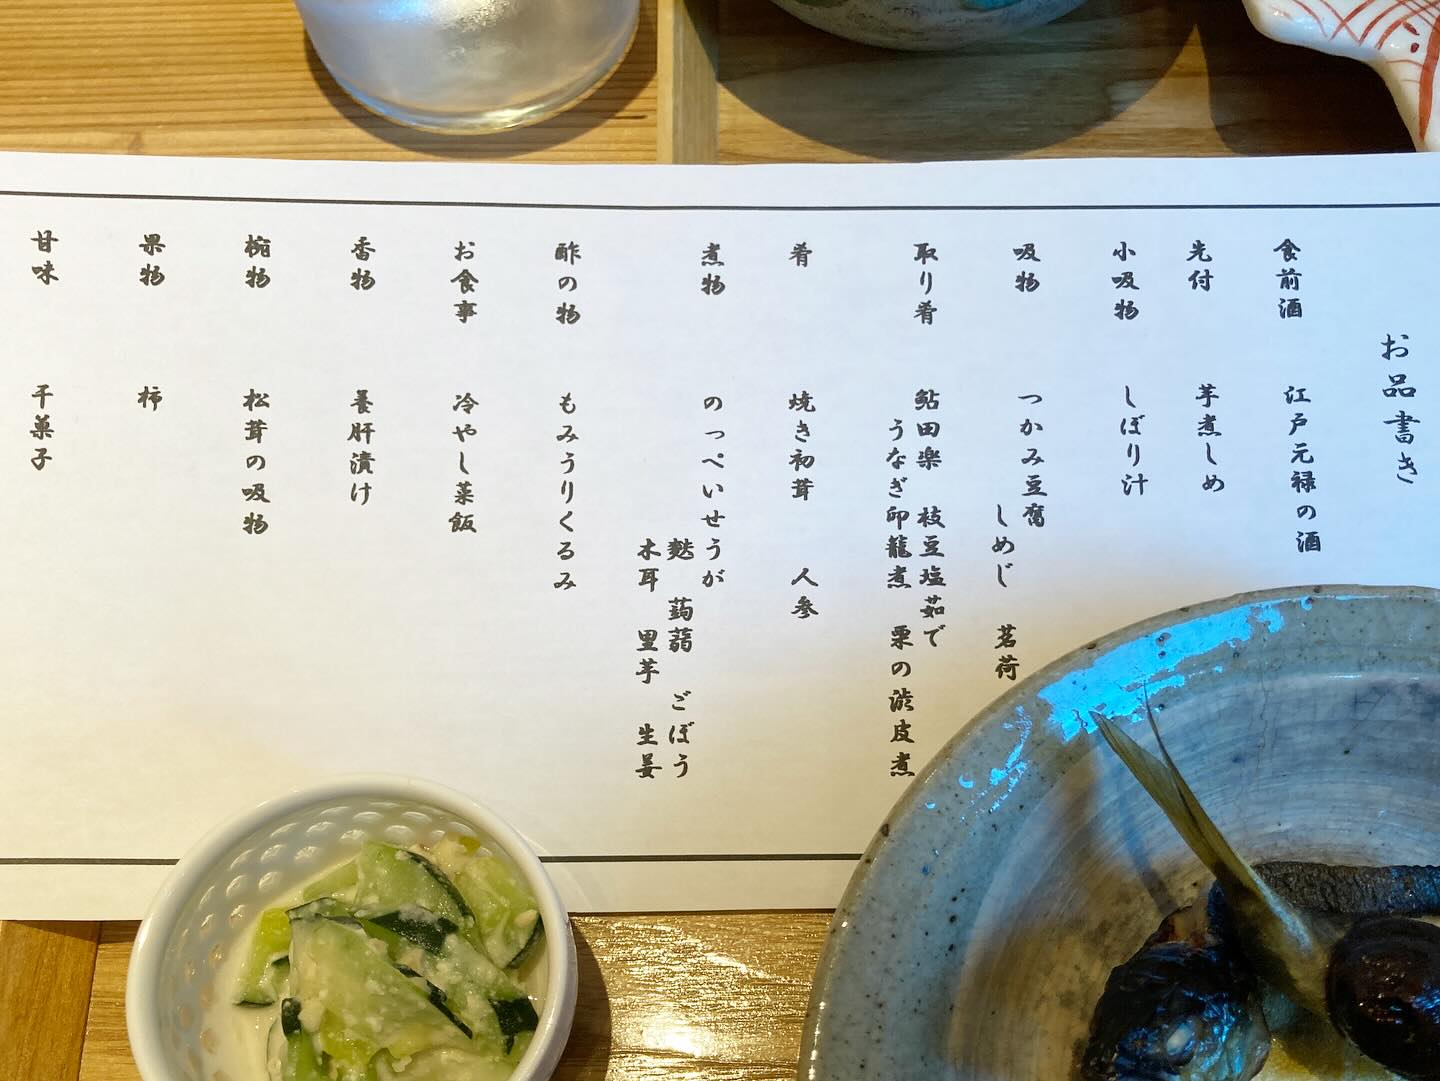 お品書き
食前酒 江戸元禄の酒
先付 芋煮しめ
小吸物 しぼり汁
吸物 つかみ豆腐
しめじ 茗荷
取り肴 鮎田楽 枝豆塩茹で
うなぎ印籠煮 栗の渋皮煮
肴 焼き初茸 人参
煮物 のっぺいせうが
麩 蒟蒻 ごぼう
木耳 里芋 生姜
酢の物 もみうりくるみ
お食事 冷やし菜飯
香物 養肝漬け
椀物 松茸の吸物
果物 柿
甘味 干菓子